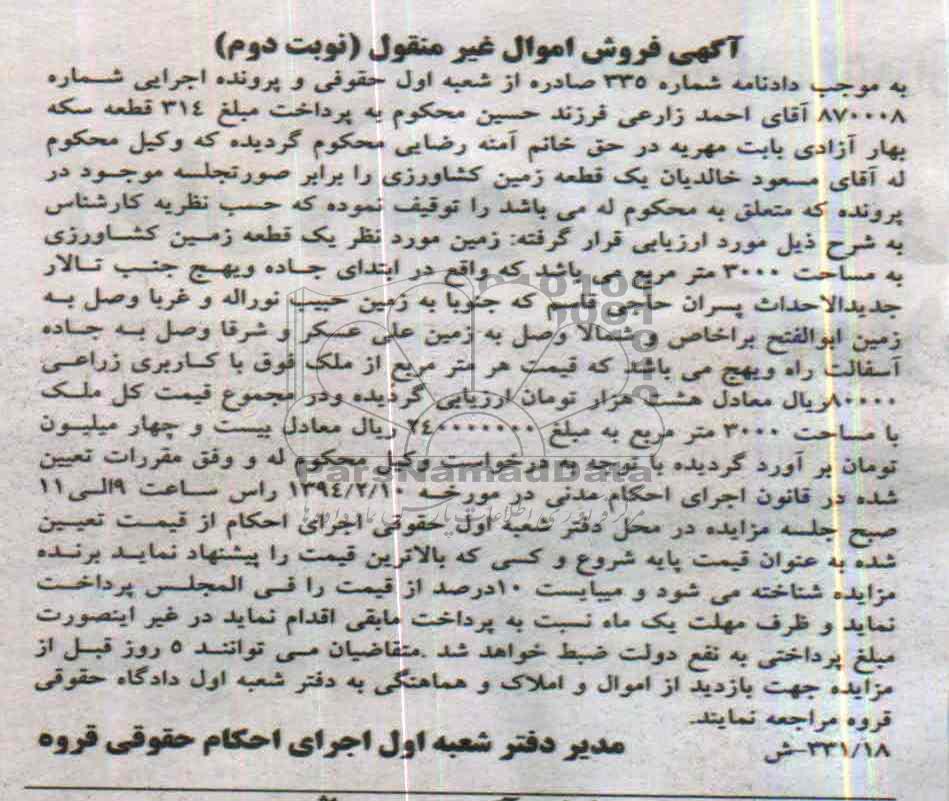 آگهی فروش اموال غیر منقول (نوبت دوم)
به موجب دادنامه شماره ۳۳۵ صادره از شعبه اول حقوقی و پرونده اجرایی شماره
۸۷۰۰۰۸ آقای احمد زارعی فرزند حسین محکوم به پرداخت مبلغ ۳۱۴ قطعه سکه
بهار آزادی بابت مهریه در حق خانم آمنه رضایی محکوم گردیده که وکیل محکوم
له آقای مسعود خالدیان یک قطعه زمین کشاورزی را برابر صورتجلسه موجود در
پرونده که متعلق به محکوم له می باشد را توقیف نموده که حسب نظریه کارشناس
به شرح ذیل مورد ارزیابی قرار گرفته: زمین مورد نظر یک قطعه زمین کشاورزی
به مساحت ۳۰۰۰ متر مربع می باشد که واقع در ابتدای جاده ویهج جنب تالار
جدیدالاحداث پسران حاجی قاسم که جنوبا به زمین حبیب نوراله و غربا وصل به
زمین ابوالفتح براخاص و شمالا وصل به زمین علی عسکر و شرقا وصل به جاده
آسفالت راه ویهج می باشد که قیمت هر متر مربع از ملک فوق با کاربری زراعی
۸۰۰۰۰ریال معادل هشت هزار تومان ارزیابی گردیده ودر مجموع قیمت کل ملک
با مساحت ۳۰۰۰ متر مربع به مبلغ ۲۴۰۰۰۰۰۰۰ ریال معادل بیست و چهار میلیون
تومان بر آورد گردیده با توجه به درخواست وکیل محکوم له و وفق مقررات تعیین
شده در قانون اجرای احکام مدنی در مورخه ۱۳۹۴/۲/۱۰ راس ساعت ۹الی۱۱
صبح جلسه مزایده در محل دفتر شعبه اول حقوقی اجرای احکام از قیمت تعیین
شده به عنوان قیمت پایه شروع و کسی که بالاترین قیمت را پیشنهاد نماید برنده
مزایده شناخته می شود و میبایست ۱۰درصد از قیمت را فی المجلس پرداخت
نماید و ظرف مهلت یک ماه نسبت به پرداخت مابقی اقدام نماید در غیر اینصورت
مبلغ پرداختی به نفع دولت ضبط خواهد شد .متقاضیان می توانند ۵ روز قبل از
مزایده جهت بازدید از اموال و املاک و هماهنگی به دفتر شعبه اول دادگاه حقوقی
قروه مراجعه نمایند.
۳۳۱/۱۸-ش
مدیر دفتر شعبه اول اجرای احکام حقوقی قروه
ParsNamadData